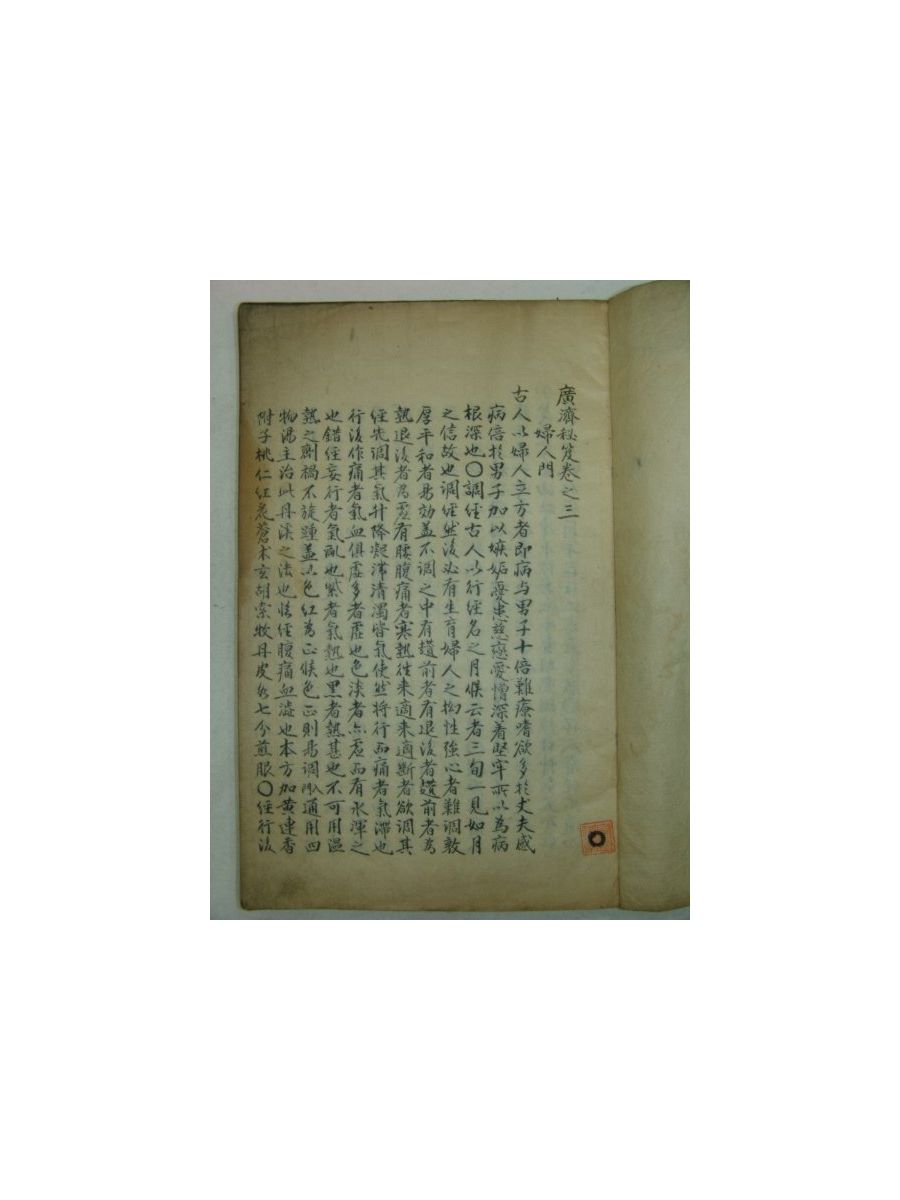 廣濟秘笈卷之三
婦人門
古人以婦人立方者即病与男子十倍難療嗜欲多扵丈夫感
病倍扵男子加以嫉妬憂恚慈戀愛憎深着堅牢所以為病
根深也〇調經古人以行經名之月候云者三旬一見如月
之信故也調經然後必有生育婦人之拗性強心者難調敦
厚平和者易効盖不調之中有趲前者有退後者趲前者為
熱退後者為虛有腰腹痛者寒熱徃来適来適斷者欲調其
經先調其氣升降凝滞清濁皆氣使然将行而痛者氣滯也
行後作痛者氣血俱虛多者虛也色淡者亦虛而有水渾之
也錯經妄行者氣亂也紫者氣熱也黒者熱甚也不可用温
熱之劑禍不旋踵盖以色紅為正候色正則易調 通用四
物湯主治此丹溪之法也 經腹痛血澁也本方加黄連香
附子桃仁紅花蒼术玄胡索牧丹皮各七分煎服〇經行後